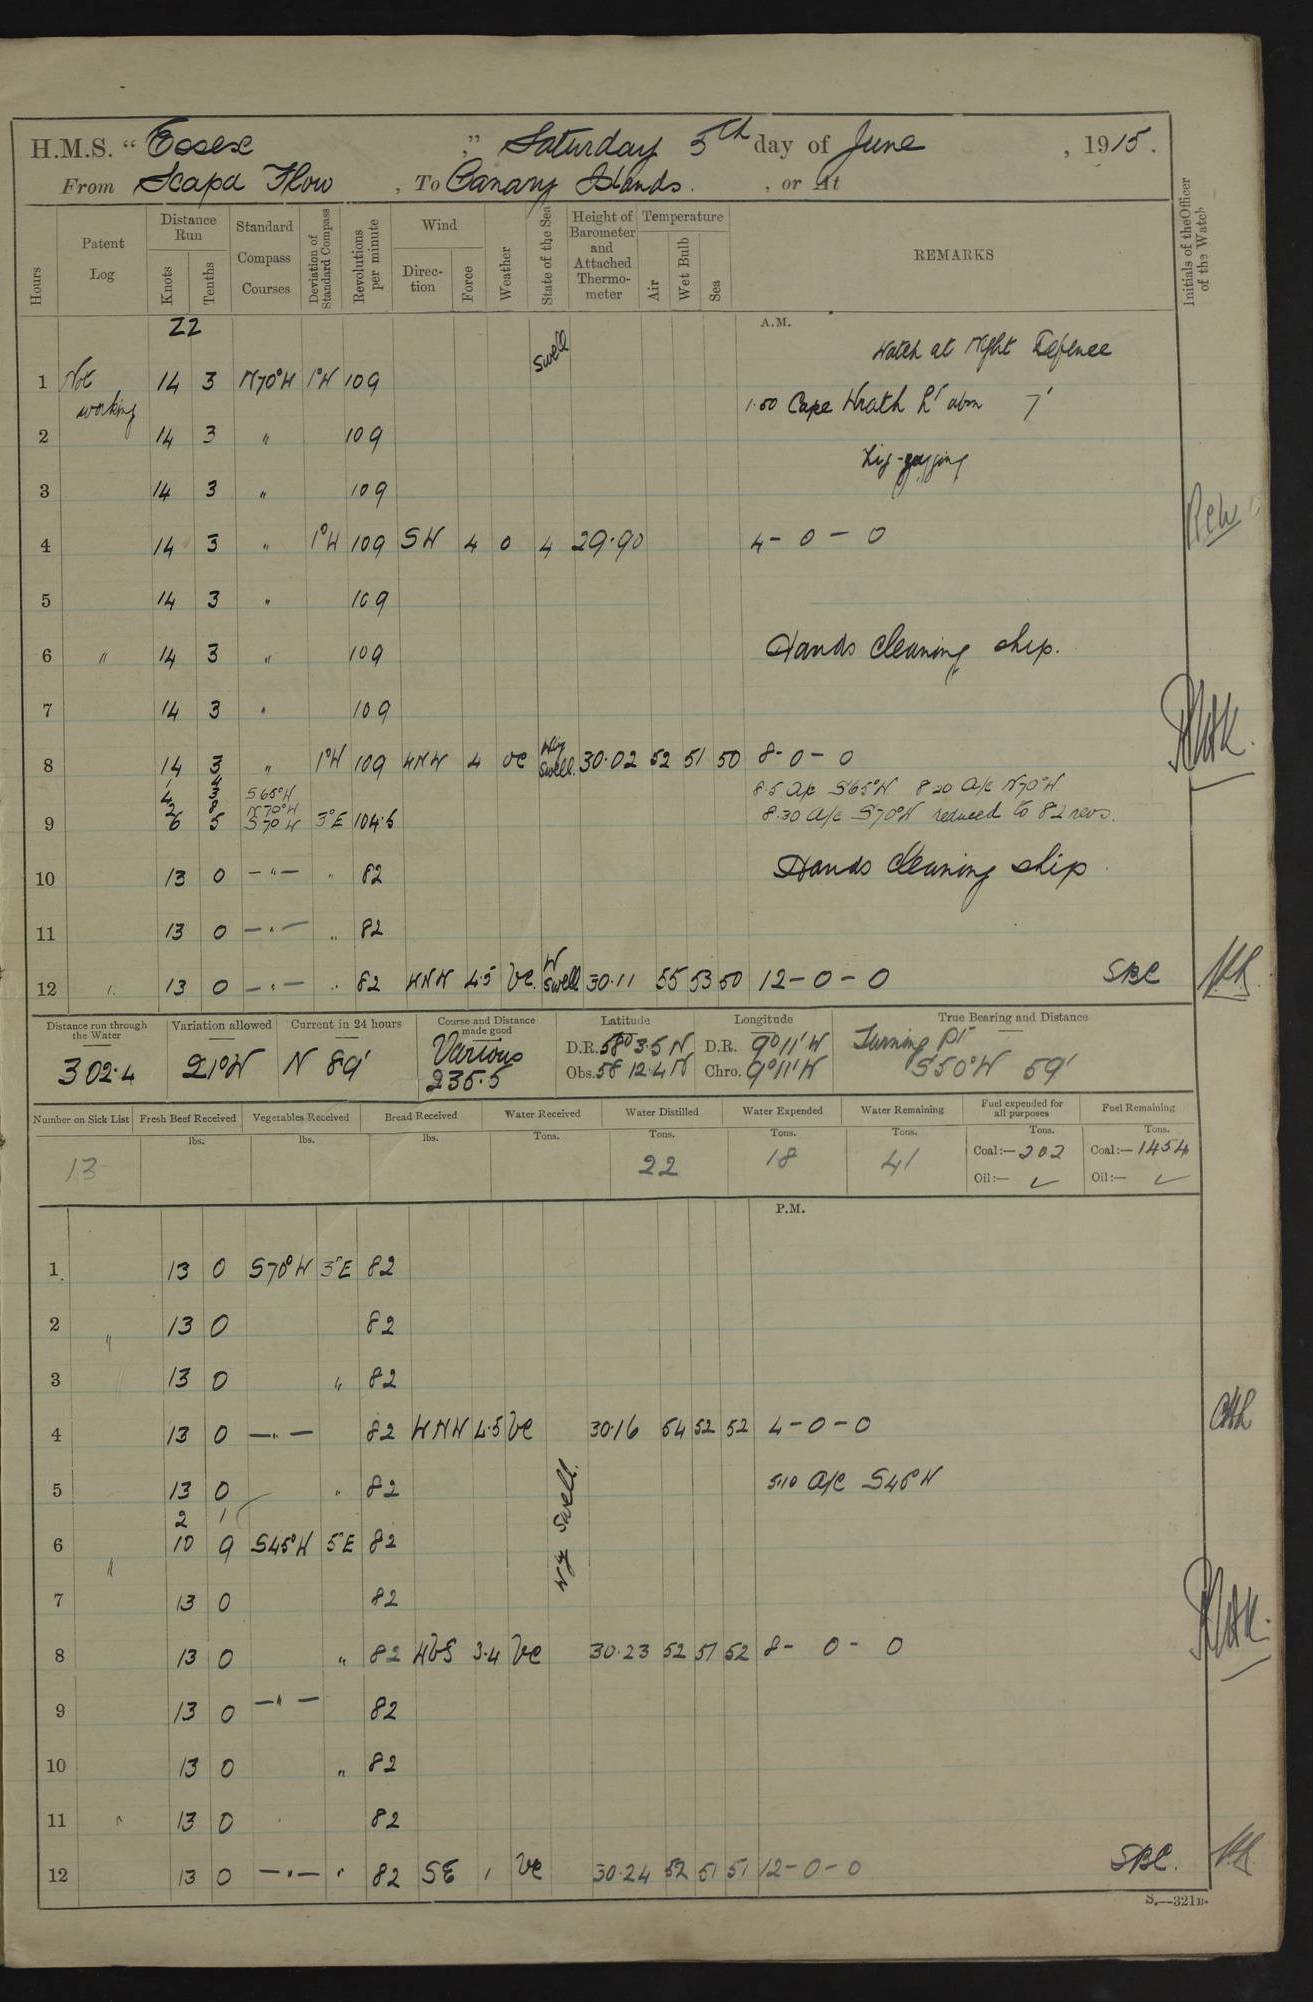 H.M.S. “ Essex ,” Saturday 5th day of June , 1915.
From Scapa Flow , To Canary Islands. , or At
Hours Patent Log Distance Run Knots Tenths Standard Compass Courses Deviation of Standard Compass Revolutions per minute Wind Direction Force Weather State of the Sea Height of Barometer and Attached Thermometer Temperature Air Wet Bulb Sea REMARKS Initials of the Officer of the Watch
22 A.M.
Swell Watch at Night Defence
1 Not working 14 3 N70°W 1°W 109
1.50 Cape Wrath Lt abm 7'
2 14 3 " 109
Zig-zagging
3 14 3 " 109
4 14 3 " 1°W 109 SW 4 0 4 29.90 4 - 0 - 0
5 14 3 " 109
6 " 14 3 " 109 Hands cleaning ship.
7 14 3 " 109
8 14 3 " 1°W 109 WNW 4 vc Wly Swell. 30.02 52 51 50 8 - 0 - 0
4 3 S65°W 8.5 A/c S65°W 8 20 A/c N70°W
2 8 N70°W
9 6 5 S70°W 3°E 104.5 8.30 A/c S70°W reduced to 82 revs.
10 13 0 — " — " 82 Hands cleaning ship
11 13 0 — " — " 82
12 " 13 0 — " — " 82 WNW 4.5 Vc. W Swell 30.11 55 53 50 12 - 0 - 0 SBC
Distance run through the Water Variation allowed Current in 24 hours Course and Distance made good Latitude Longitude True Bearing and Distance
302.4 21°W N 89' Various 235.5 D.R. 58° 3.5 N D.R. 9°11' W Turning Pt
Obs. 58 12.4 N Chro. 9°11' W S50°W 59'
Number on Sick List Fresh Beef Received Vegetables Received Bread Received Water Received Water Distilled Water Expended Water Remaining Fuel expended for all purposes Fuel Remaining
lbs. lbs. lbs. Tons. Tons. Tons. Tons. Tons. Tons.
13 22 18 41 Coal:— 202 Coal:— 1454
Oil:— ✓ Oil:— ✓
P.M.
1 13 0 S70°W 3°E 82
2 " 13 0 82
3 " 13 0 " 82
4 13 0 — " — 82 WNW 4.5 Vc 30.16 54 52 52 4 - 0 - 0
5 13 0 " 82 5.10 A/c S45°W
Wly Swell.
2 1
6 " 10 9 S45°W 5°E 82
7 13 0 82
8 13 0 " 82 WbS 3.4 Vc 30.23 52 51 52 8 - 0 - 0
9 13 0 — " — 82
10 13 0 " 82
11 " 13 0 82
12 13 0 — " — " 82 SE 1 Vc 30.24 52 51 51 12 - 0 - 0 SBC.
S.—321B.